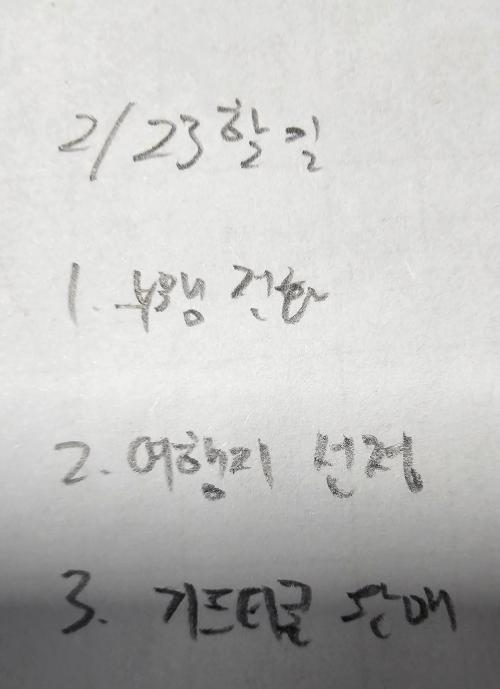 2/23 할 일
1. 전화
2. 여행지 선정
3. 기프티콘 판매